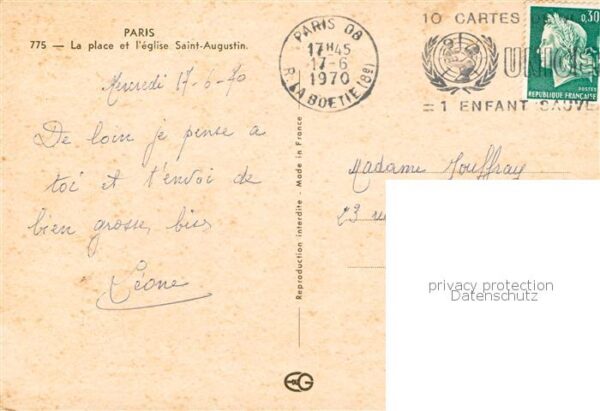 PARIS
775 — La place et l'église Saint-Augustin.
Mercredi 17-6-70
De loin je pense a
toi et t'envoi de
bien grosses bises
Léone
Reproduction interdite - Made in France
EG
PARIS 08
17H45
17-6
1970
R. LA BOETIE (8e)
10 CARTES
UNICEF
= 1 ENFANT SAUVE
0,30
POSTES
REPUBLIQUE FRANÇAISE
Madame Jouffray
23
privacy protection
Datenschutz